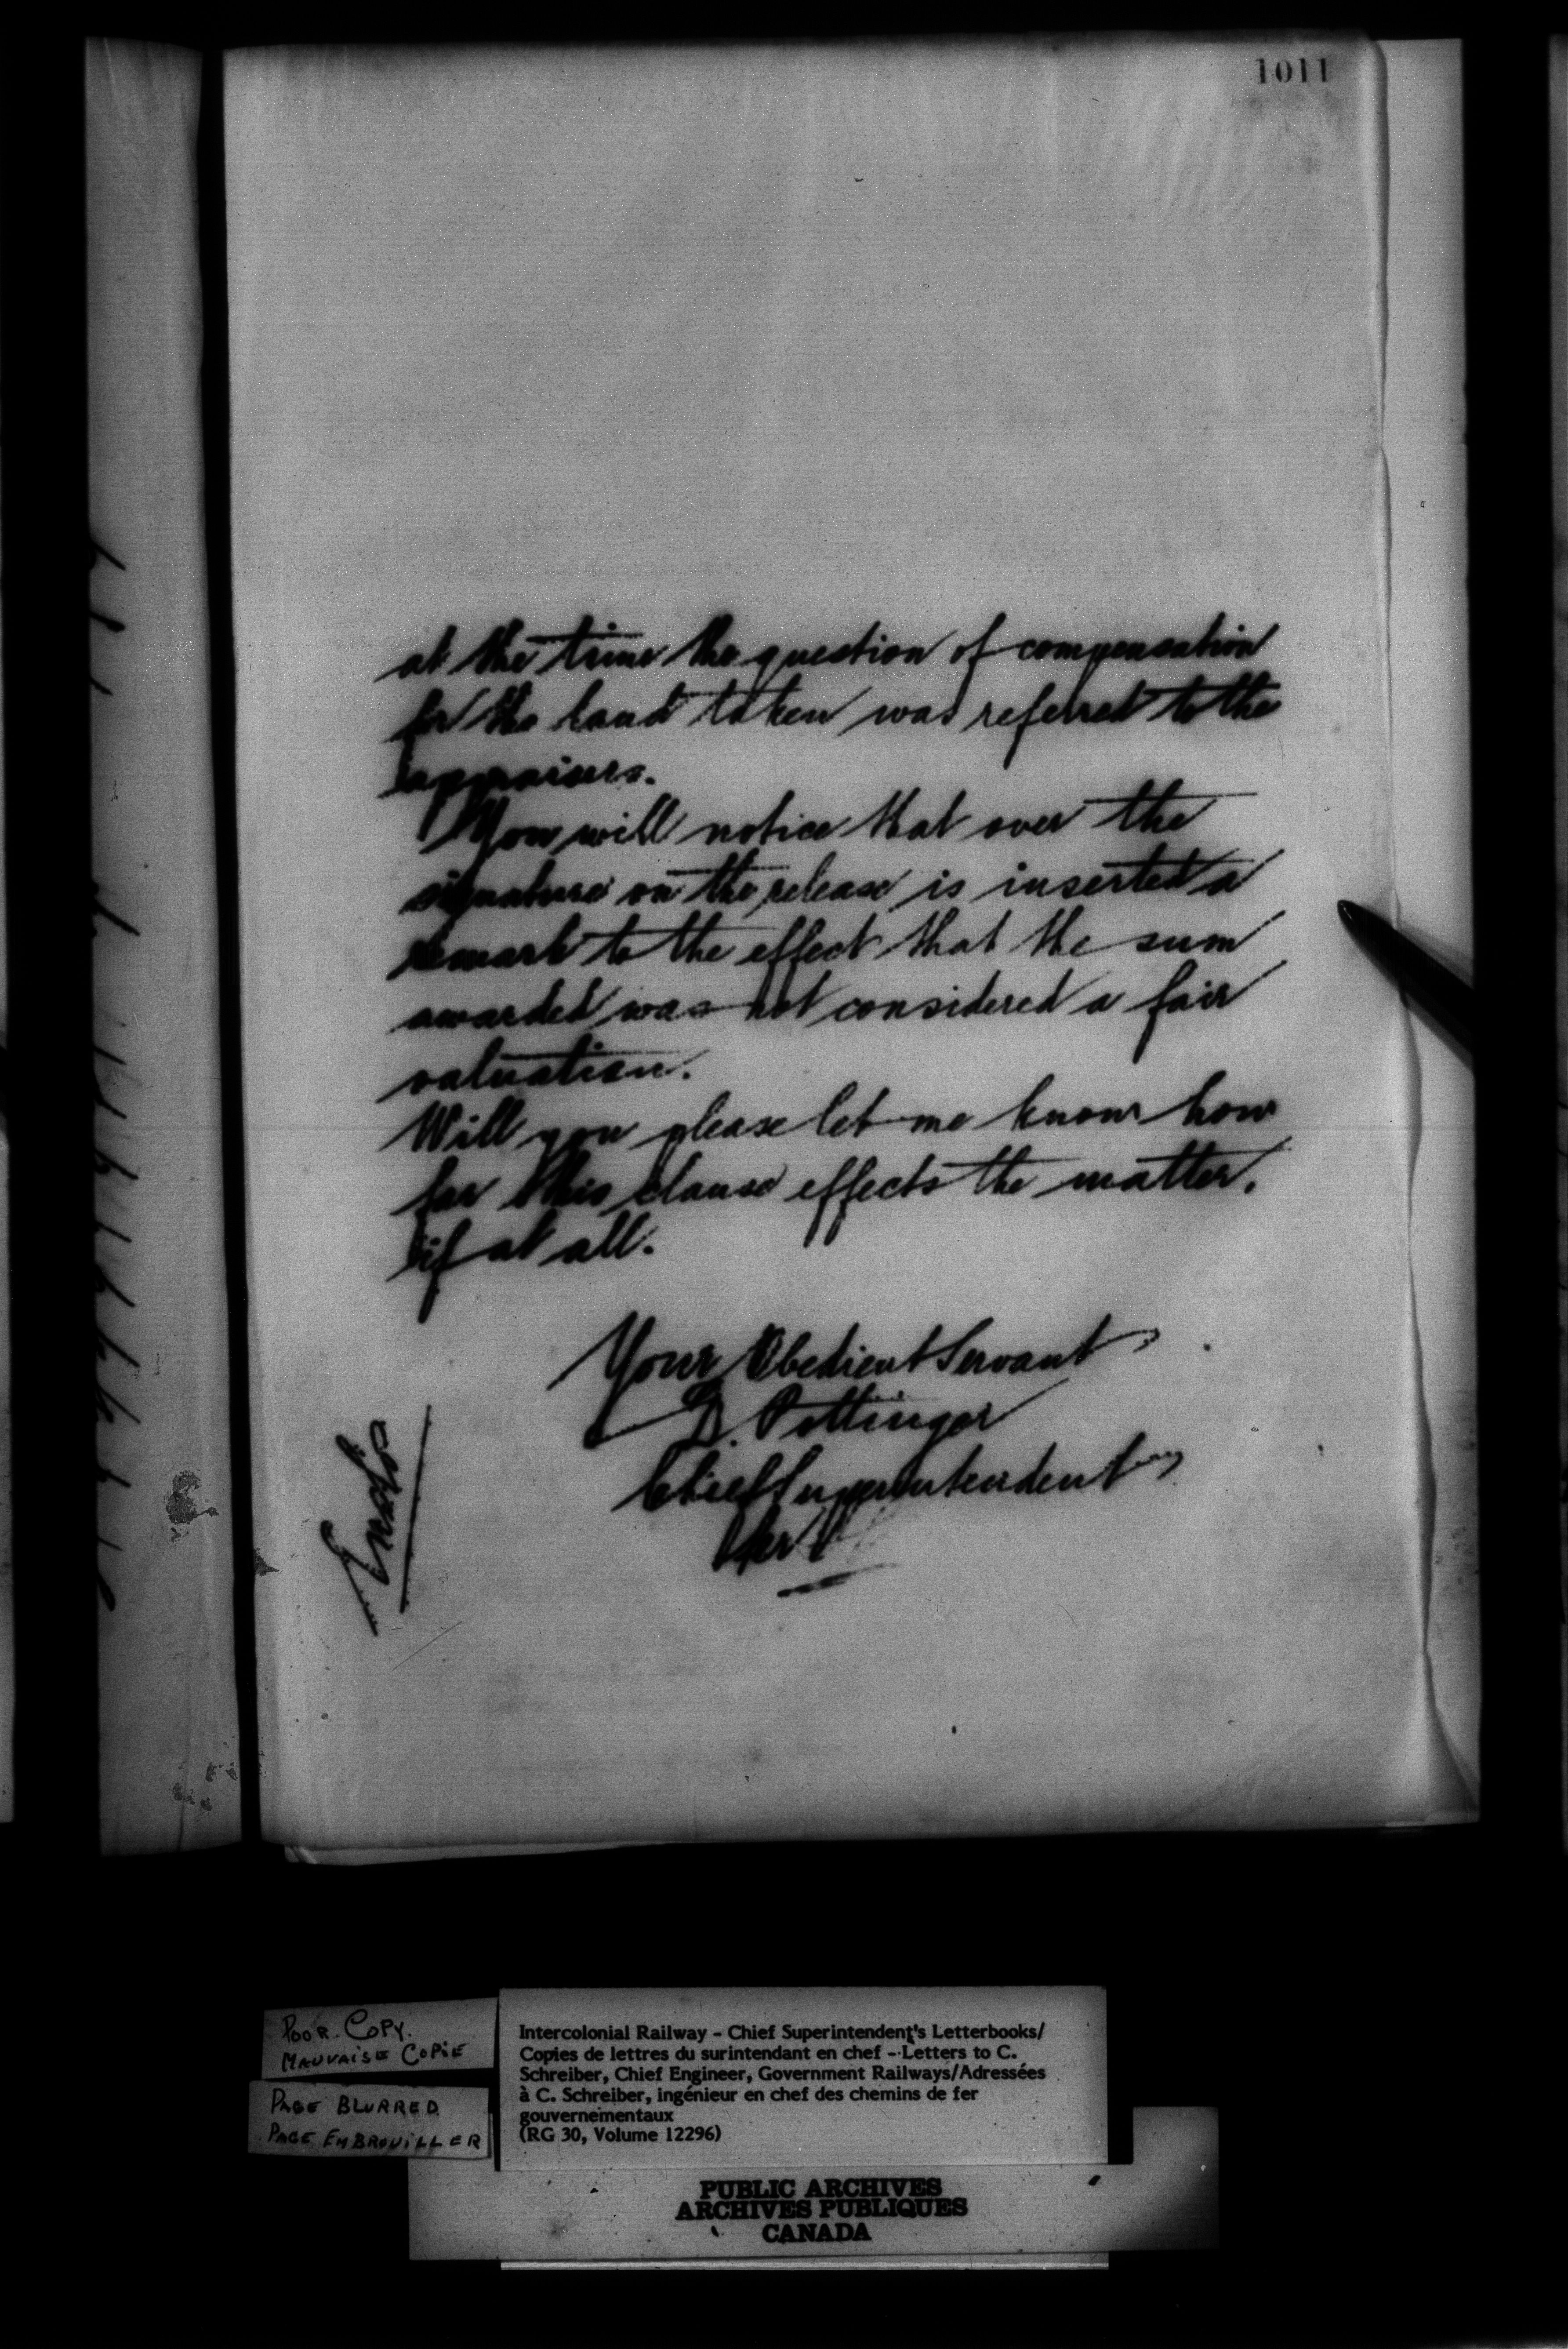 1011
at the time the question of compensation
for the land taken was referred to the
appraisers.
You will notice that over the
signature on the release is inserted a
remark to the effect that the sum
awarded was not considered a fair
valuation.
Will you please let me know how
far this clause effects the matter,
if at all.
Your Obedient Servant
D. Pottinger
Chief Superintendent
Per
Encls
POOR COPY.
MAUVAISE COPIE
PAGE BLURRED
PAGE EMBROUILLER
Intercolonial Railway - Chief Superintendent's Letterbooks/
Copies de lettres du surintendant en chef - Letters to C.
Schreiber, Chief Engineer, Government Railways/Adressées
à C. Schreiber, ingénieur en chef des chemins de fer
gouvernementaux
(RG 30, Volume 12296)
PUBLIC ARCHIVES
ARCHIVES PUBLIQUES
CANADA